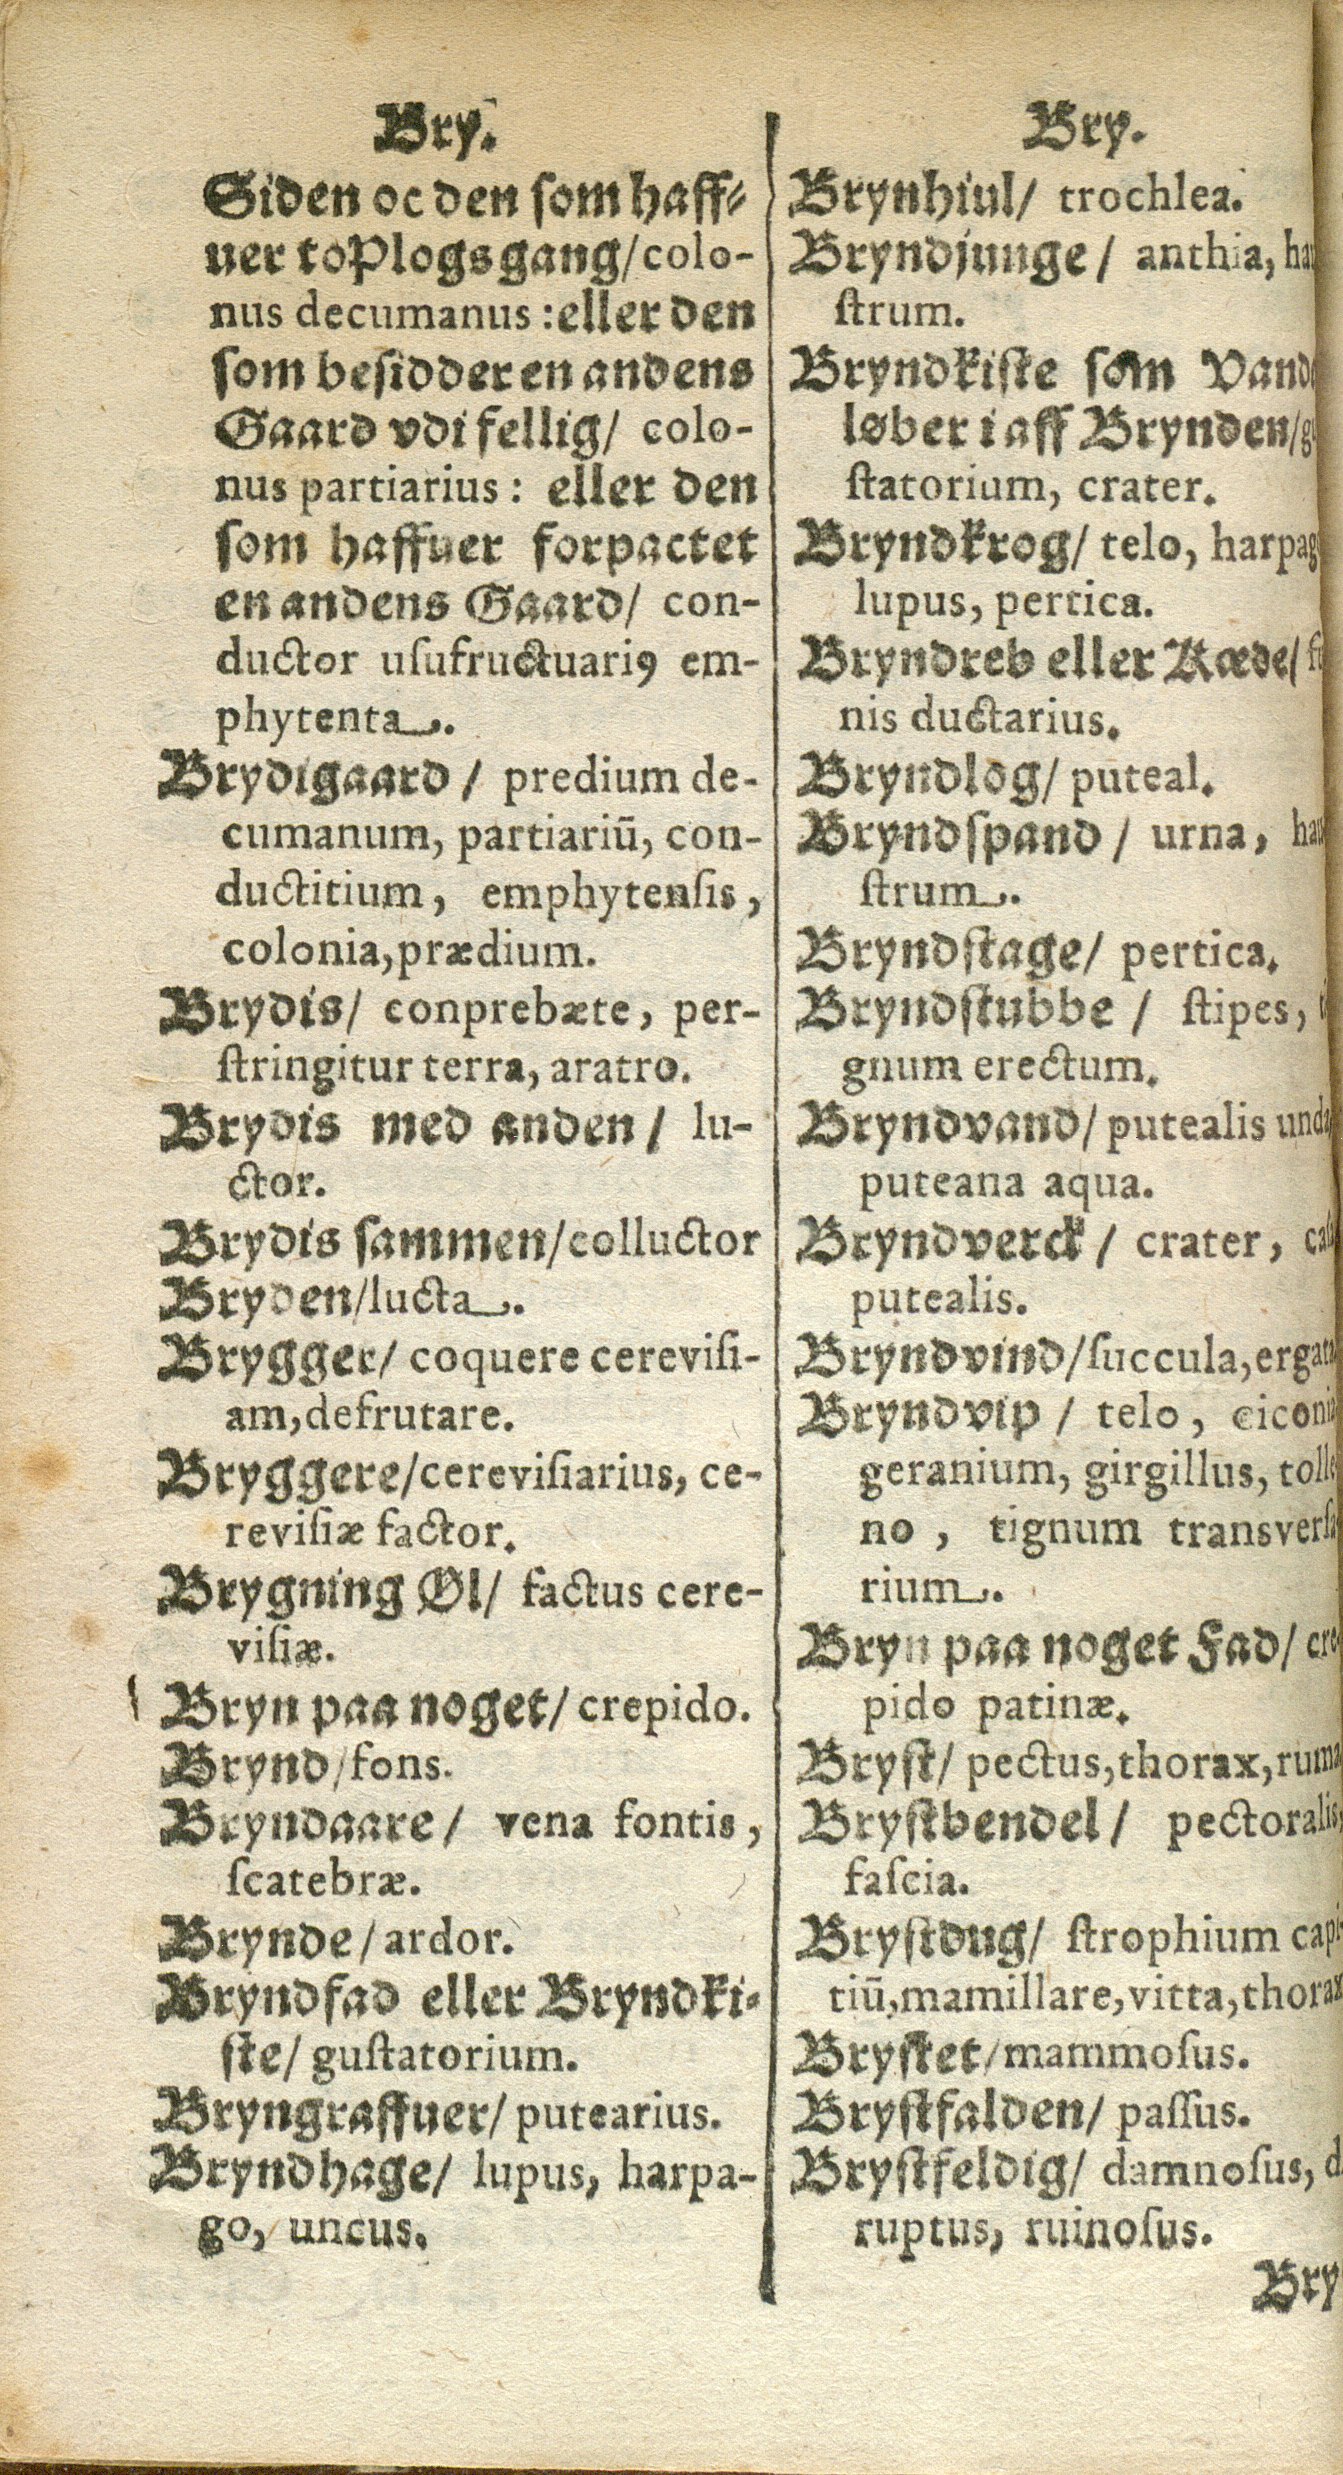 Bry.
Siden oc den ſom haff⸗
uer to Plogs gang/ colo-
nus decumanus : eller den
ſom beſidder en andens
Gaard vdi fellig/ colo-
nus partiarius : eller den
ſom haffuer forpactet
en andens Gaard/ con-
ductor uſufructuariꝰ em-
phytenta.
Brydigaard / predium de-
cumanum, partiariū, con-
ductitium, emphytenſis,
colonia, prædium.
Brydis/ conprebæte, per-
ſtringitur terra, aratro.
Brydis med anden / lu-
ctor.
Brydis ſammen/ colluctor
Bryden/ lucta.
Brygger/ coquere cereviſi-
am, defrutare.
Bryggere/ cereviſiarius, ce-
reviſiæ factor.
Brygning Øl/ factus cere-
viſiæ.
Bryn paa noget/ crepido.
Brynd/ fons.
Bryndaare / vena fontis,
ſcatebræ.
Brynde / ardor.
Bryndfad eller Bryndki⸗
ſte/ guſtatorium.
Bryngraffuer/ putearius.
Bryndhage/ lupus, harpa-
go, uncus.
Bry.
Brynhiul/ trochlea.
Bryndjunge / anthia,
ſtrum.
Bryndkiſte ſom
løber i aff Brynden/
ſtatorium, crater.
Bryndkrog/ telo,
lupus, pertica.
Bryndreb eller Kæde/
nis ductarius.
Bryndlog/ puteal.
Bryndſpand / urna,
ſtrum.
Bryndſtage/ pertica.
Bryndſtubbe / ſtipes,
gnum erectum.
Bryndvand/ putealis unda
puteana aqua.
Bryndverck / crater,
putealis.
Bryndvind/ ſuccula,
Bryndvip / telo,
geranium, girgillus, tolle
no, tignum
rium.
Bryn paa noget Fad/ cre-
pido patinæ.
Bryſt/ pectus, thorax, ruma
Bryſtbendel / pectoralis,
faſcia.
Bryſtdug/ ſtrophium capi-
tiū, mamillare, vitta, thorax
Bryſtet/ mammoſus.
Bryſtfalden/ paſſus.
Bryſtfeldig/ damnoſus,
ruptus, ruinoſus.
Bry